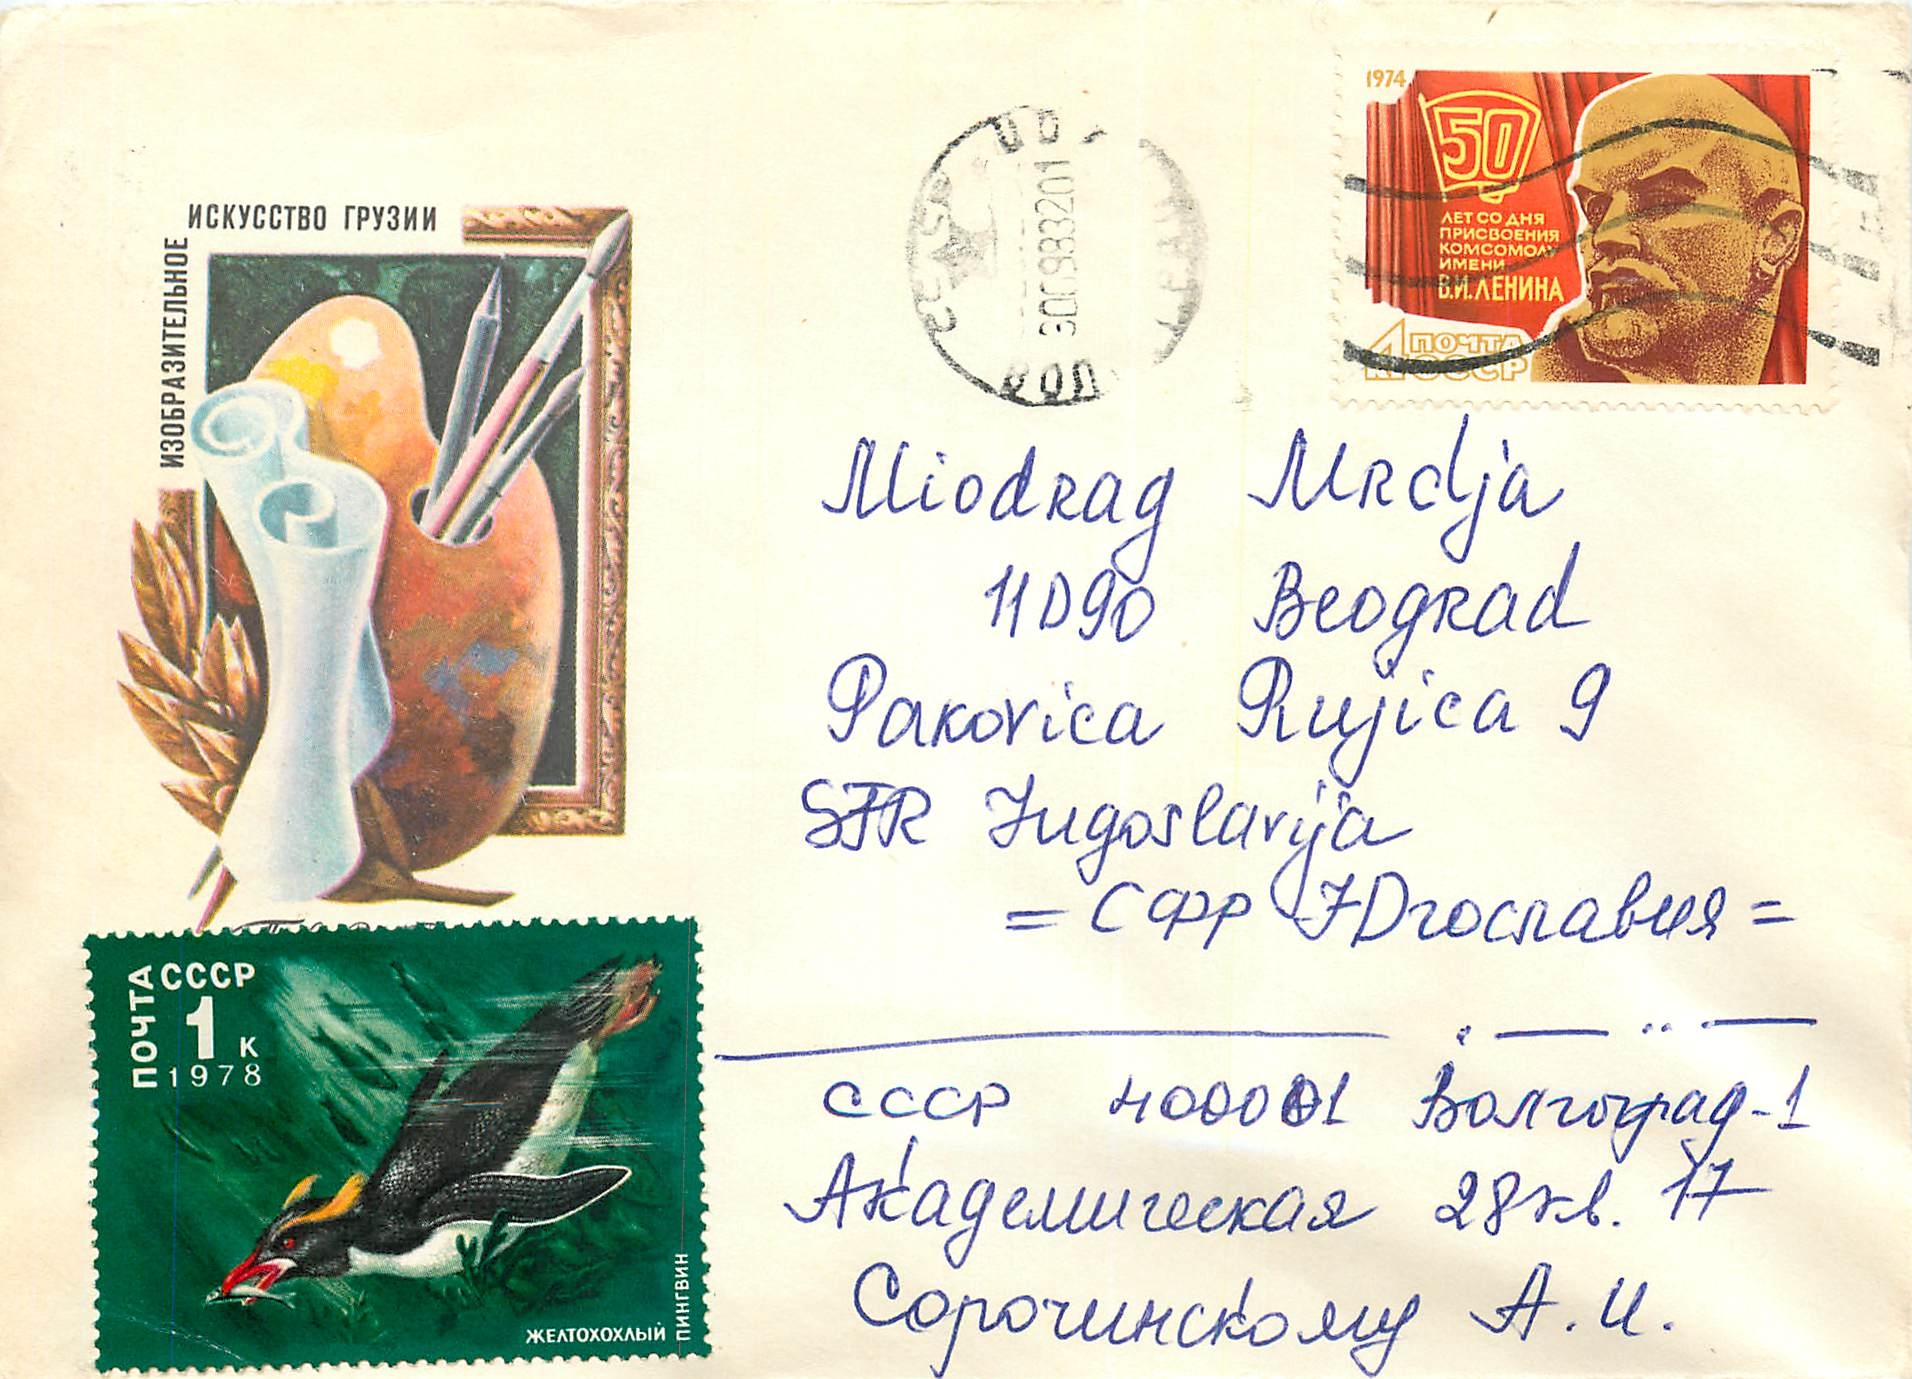 ИЗОБРАЗИТЕЛЬНОЕ
ИСКУССТВО ГРУЗИИ
1974
50
ЛЕТ СО ДНЯ
ПРИСВОЕНИЯ
КОМСОМОЛУ
ИМЕНИ
В.И.ЛЕНИНА
4К ПОЧТА
СССР
300983201
Miodrag Mrdja
11090 Beograd
Pakovica Rujica 9
SFR Jugoslavija
= СФР Югославия =
СССР 400001 Волгоград-1
Академическая 28 кв. 17
Сорочинскому А.И.
ПОЧТА СССР
1 К
1978
ЖЕЛТОХОХЛЫЙ ПИНГВИН